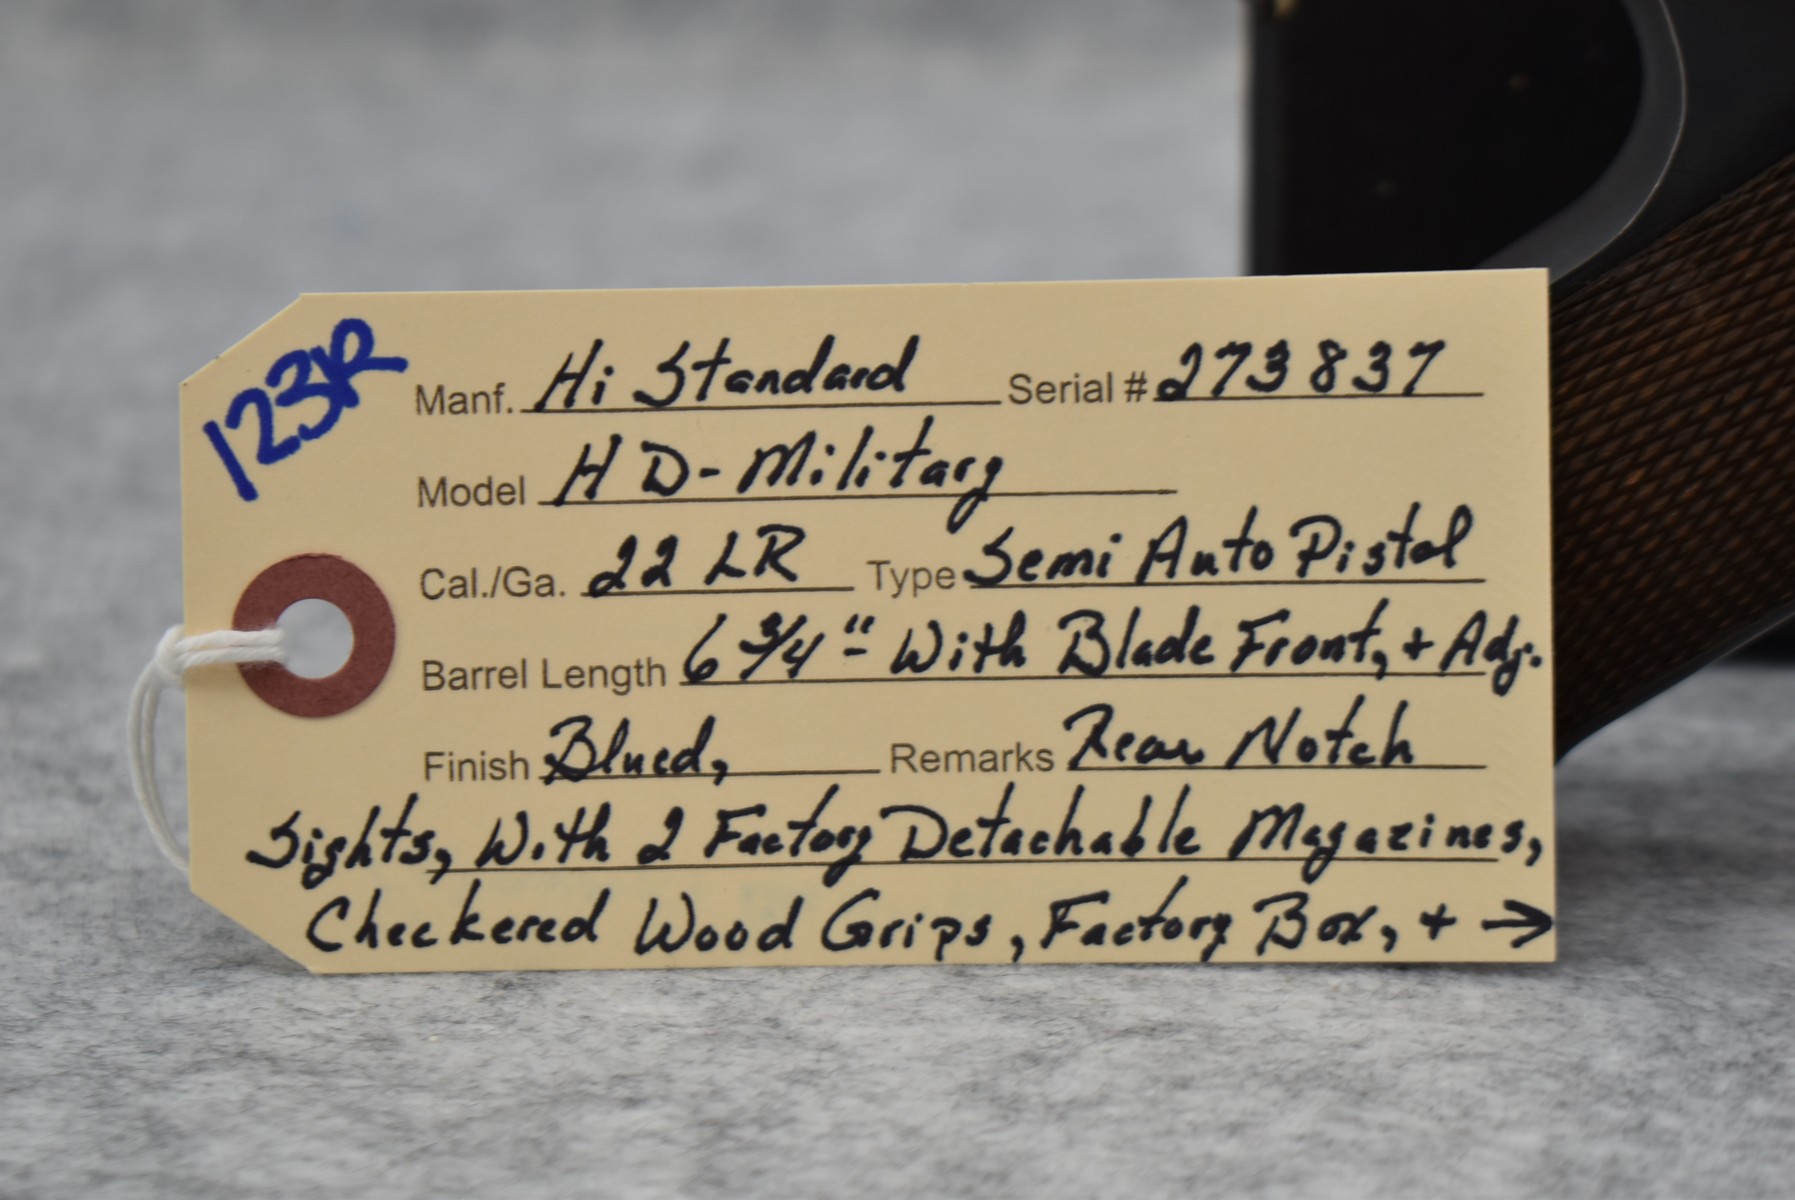 123R
Manf. Hi Standard Serial # 273837
Model HD-Military
Cal./Ga. 22 LR Type Semi Auto Pistol
Barrel Length 6 3/4" With Blade Front, + Adj.
Finish Blued, Remarks Rear Notch
Sights, With 2 Factory Detachable Magazines,
Checkered Wood Grips, Factory Box, + →